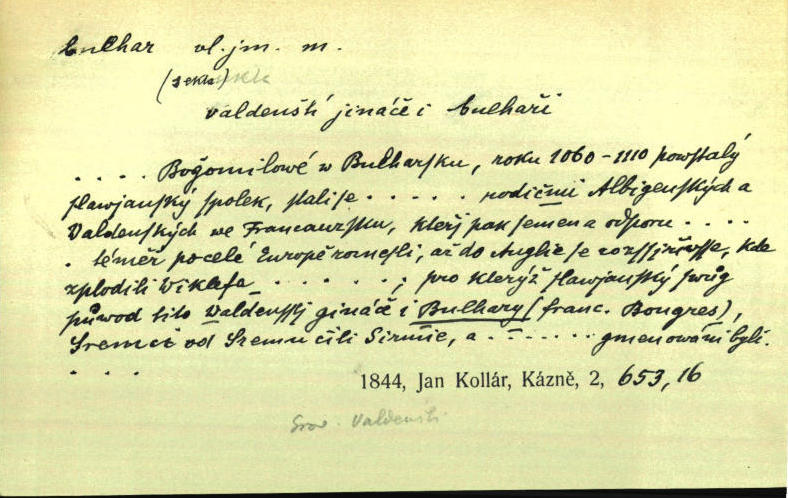 bulhar vl. jm. m.
(sekta)
valdenští jináče i bulhaři
. . . . Bogomilowé w Bulharsku, roku 1060-1110 powstalý
slawjanský spolek, stali se . . . . . rodičmi Albigenských a
Valdenských we Francauzsku, kteřj pak semena odporu . . . .
. téměř po celé Europě roznesli, až do Anglie se rozssiřiwsse, kde
zplodili Wiklefa . . . . . . ; pro kterýž slawjanský swůg
půwod tito Valdenssj gináč i Bulhary (franc. Bougres),
Sremci od Sremu čili Sirmie, a . . . . . . gmenowáni byli.
. . . .
1844, Jan Kollár, Kázně, 2, 653,16
Srov. Valdenští